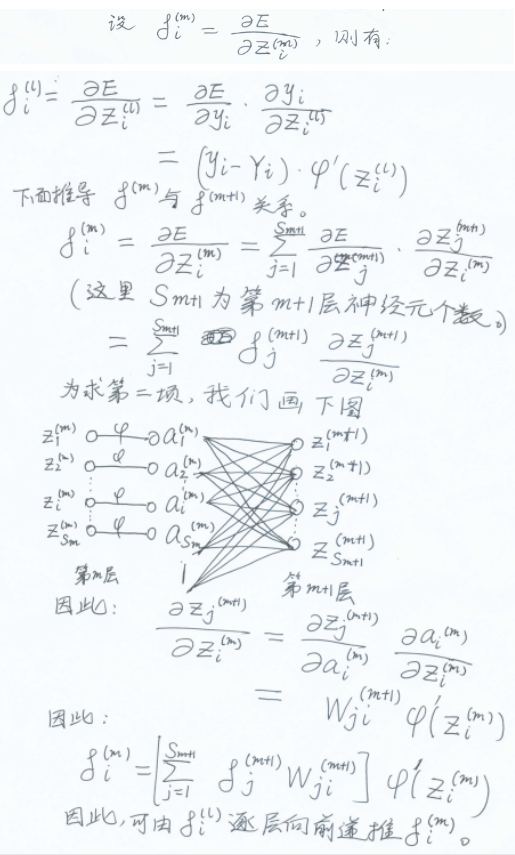 设 δ_i^(m) = ∂E/∂z_i^(m), 则有:
δ_i^(l) = ∂E/∂z_i^(l) = ∂E/∂y_i · ∂y_i/∂z_i^(l)
= (y_i - Y_i) · φ'(z_i^(l))
下面推导 δ^(m) 与 δ^(m+1) 关系。
δ_i^(m) = ∂E/∂z_i^(m) = Σ_{j=1}^{S_{m+1}} ∂E/∂z_j^(m+1) · ∂z_j^(m+1)/∂z_i^(m)
(这里 S_{m+1} 为第 m+1 层神经元个数。)
= Σ_{j=1}^{S_{m+1}} δ_j^(m+1) ∂z_j^(m+1)/∂z_i^(m)
为求第二项, 我们画下图
z_1^(m) φ a_1^(m) z_1^(m+1)
z_2^(m) φ a_2^(m) z_2^(m+1)
z_i^(m) φ a_i^(m) z_j^(m+1)
z_{S_m}^(m) φ a_{S_m}^(m) z_{S_{m+1}}^(m+1)
第m层 1 第m+1层
因此: ∂z_j^(m+1)/∂z_i^(m) = ∂z_j^(m+1)/∂a_i^(m) ∂a_i^(m)/∂z_i^(m)
= W_ji^(m+1) φ'(z_i^(m))
因此:
δ_i^(m) = [Σ_{j=1}^{S_{m+1}} δ_j^(m+1) W_ji^(m+1)] φ'(z_i^(m))
因此, 可由 δ_i^(l) 逐层向前递推 δ_i^(m)。